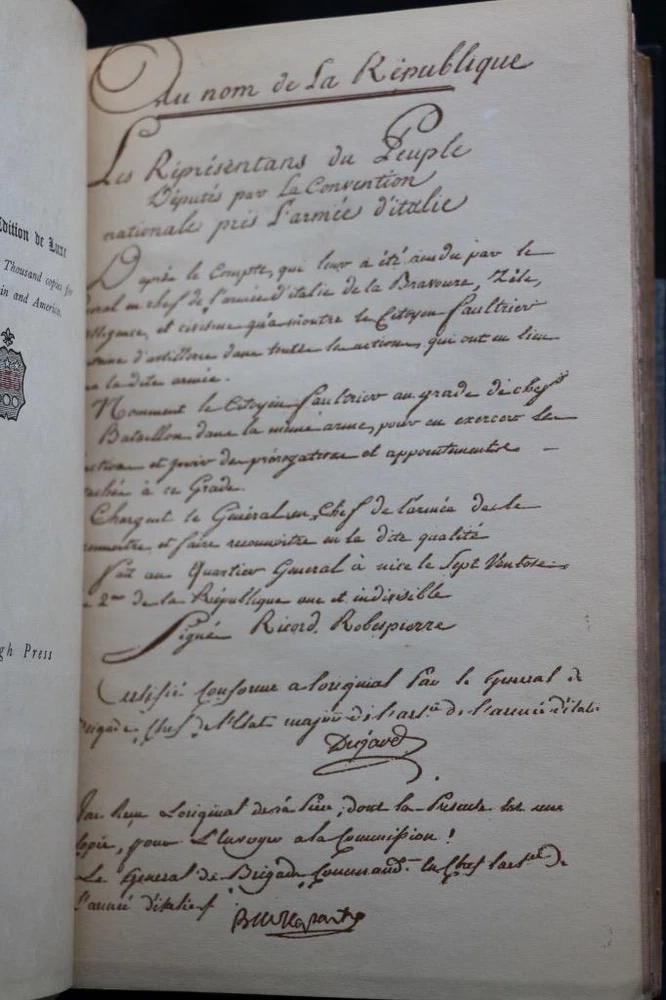 Edition de Luxe
Thousand copies for
in and America.
gh Press
Au nom de La République
Les Réprésentans du Peuple
Députés par La Convention
nationale près L'armée d'italie
D'après le Compte, qui leur a été rendu par le
en chef de l'armée d'italie de la Bravoure, Zèle,
et civisme qu'a montré le Citoyen Faultrier
d'artillerie dans toutes les actions, qui ont eu lieu
la dite armée.
Nomment le Citoyen Faultrier au grade de chef
Bataillon dans la même arme, pour en exercer les
et jouir des prérogatives et appointements
à ce Grade.
Chargent le Général en Chef de l'armée de le
et faire reconnoitre en la dite qualité
Fait au Quartier General à nice le Sept Ventose
2me de la République une et indivisible
Signé Ricord, Robespierre
Certifié Conforme a loriginal Par le General de
Brigade, Chef de l'Etat major de l'arrie de l'armée d'itali
Dujard
Jai Reçu Loriginal de la Piece, dont la Presente Est une
Copie, pour L'Envoyer a la Commission!
Le General de Brigade Command. En Chef lartrie de
l'armée d'italie
Buonaparte